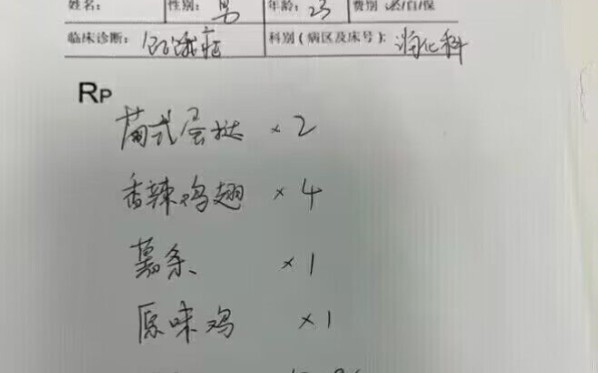 姓名: 性别: 男 年龄: 23 费别
临床诊断: 饥饿症 科别(病区及床号): 消化科
Rp
葡式蛋挞 ×2
香辣鸡翅 ×4
薯条 ×1
原味鸡 ×1